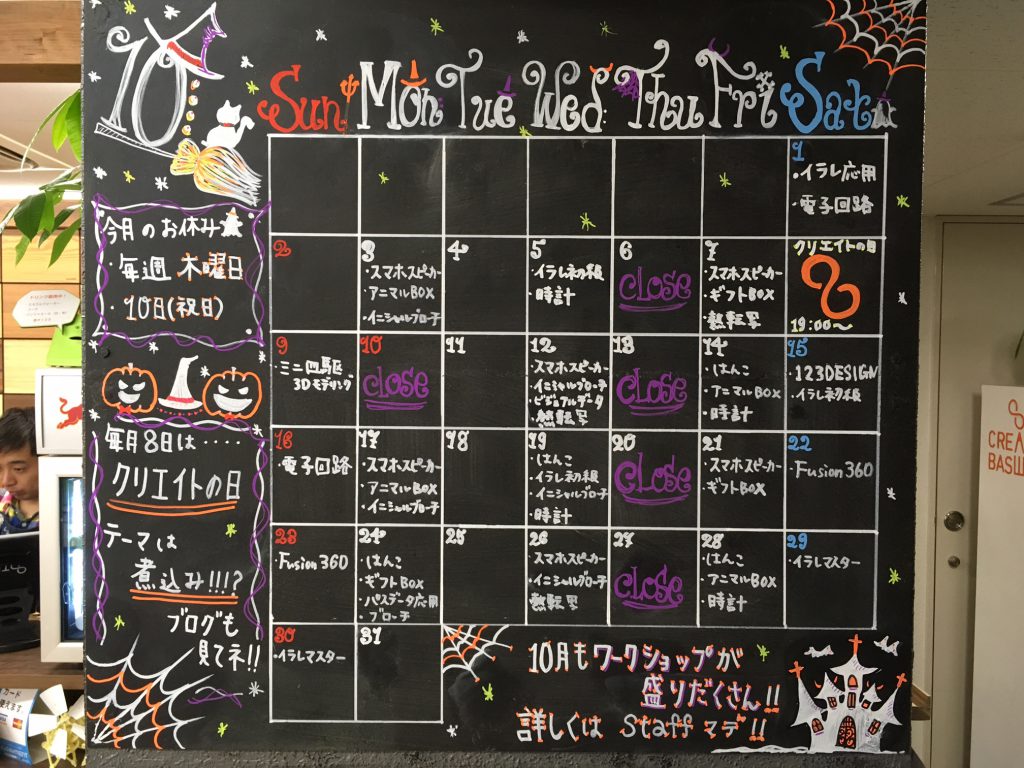 10
Sun Mon Tue Wed Thu Fri Sat
今月のお休み
・毎週 木曜日
・10日(祝日)
毎月8日は・・・・
クリエイトの日
テーマは
煮込み!!!?
ブログも
見てネ!!
1
・イラレ応用
・電子回路
2
3
・スマホスピーカー
・アニマルBOX
・イニシャルブローチ
4
5
・イラレ初級
・時計
6
CLOSE
7
・スマホスピーカー
・ギフトBOX
・熱転写
クリエイトの日
8
19:00〜
9
・ミニ四駆
3Dモデリング
10
CLOSE
11
12
・スマホスピーカー
・イニシャルブローチ
・ビジュアルデータ
・熱転写
13
CLOSE
14
・はんこ
・アニマルBOX
・時計
15
・123DESIGN
・イラレ初級
16
・電子回路
17
・スマホスピーカー
・アニマルBOX
・イニシャルブローチ
18
19
・はんこ
・イラレ初級
・イニシャルブローチ
・時計
20
CLOSE
21
・スマホスピーカー
・ギフトBOX
22
・Fusion360
23
・Fusion360
24
・はんこ
・ギフトBOX
・パスデータ応用
・ブローチ
25
26
スマホスピーカー
・イニシャルブローチ
熱転写
27
CLOSE
28
・はんこ
・アニマルBOX
・時計
29
・イラレマスター
30
・イラレマスター
31
10月もワークショップが
盛りだくさん!!
詳しくは Staff マデ!!
CREA
BASE
カード
使えます